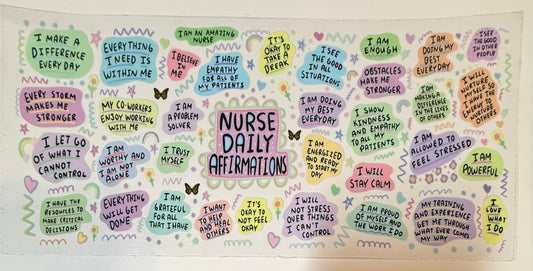 I MAKE A
DIFFERENCE
EVERYDAY
EVERYTHING
I NEED IS
WITHIN ME
I AM AN AMAZING
NURSE
I BELIEVE
IN
ME
I HAVE
EMPATHY
FOR ALL OF
MY PATIENTS
IT'S
OKAY TO
TAKE A
BREAK
I SEE
THE GOOD
IN ALL
SITUATIONS
I AM
ENOUGH
OBSTACLES
MAKE ME
STRONGER
I AM
DOING MY
BEST
EVERYDAY
I SEE
THE GOOD
IN OTHER
PEOPLE
EVERY STORM
MAKES ME
STRONGER
MY CO-WORKERS
ENJOY WORKING
WITH ME
I AM
A PROBLEM
SOLVER
NURSE
DAILY
AFFIRMATIONS
I AM DOING
MY BEST
EVERYDAY
I SHOW
KINDNESS
AND EMPATHY
TO ALL MY
PATIENTS
I AM
MAKING A
DIFFERENCE
IN THE LIVES
OF OTHERS
I WILL
NURTURE
MYSELF SO
I HAVE THE
WANT TO
OTHERS
I LET GO
OF WHAT I
CANNOT
CONTROL
I AM
WORTHY AND
I AM NOT
ALONE
I TRUST
MYSELF
I AM
ENERGIZED
AND READY
TO START MY
DAY
I WILL
STAY CALM
I AM
ALLOWED TO
FEEL STRESSED
I AM
POWERFUL
I HAVE THE
RESOURCES TO
MAKE CRITICAL
DECISIONS
EVERYTHING
WILL GET
DONE
I AM
GRATEFUL
FOR ALL
THAT I HAVE
I WANT
TO HELP
AND HEAL
OTHERS
IT'S
OKAY TO
NOT FEEL
OKAY
I WILL
NOT STRESS
OVER THINGS
I CAN'T
CONTROL
I AM PROUD
OF MYSELF AND
THE WORK I DO
MY TRAINING
AND EXPERIENCE
GET ME THROUGH
WHAT EVER COMES
MY WAY
I
LOVE
WHAT
I DO